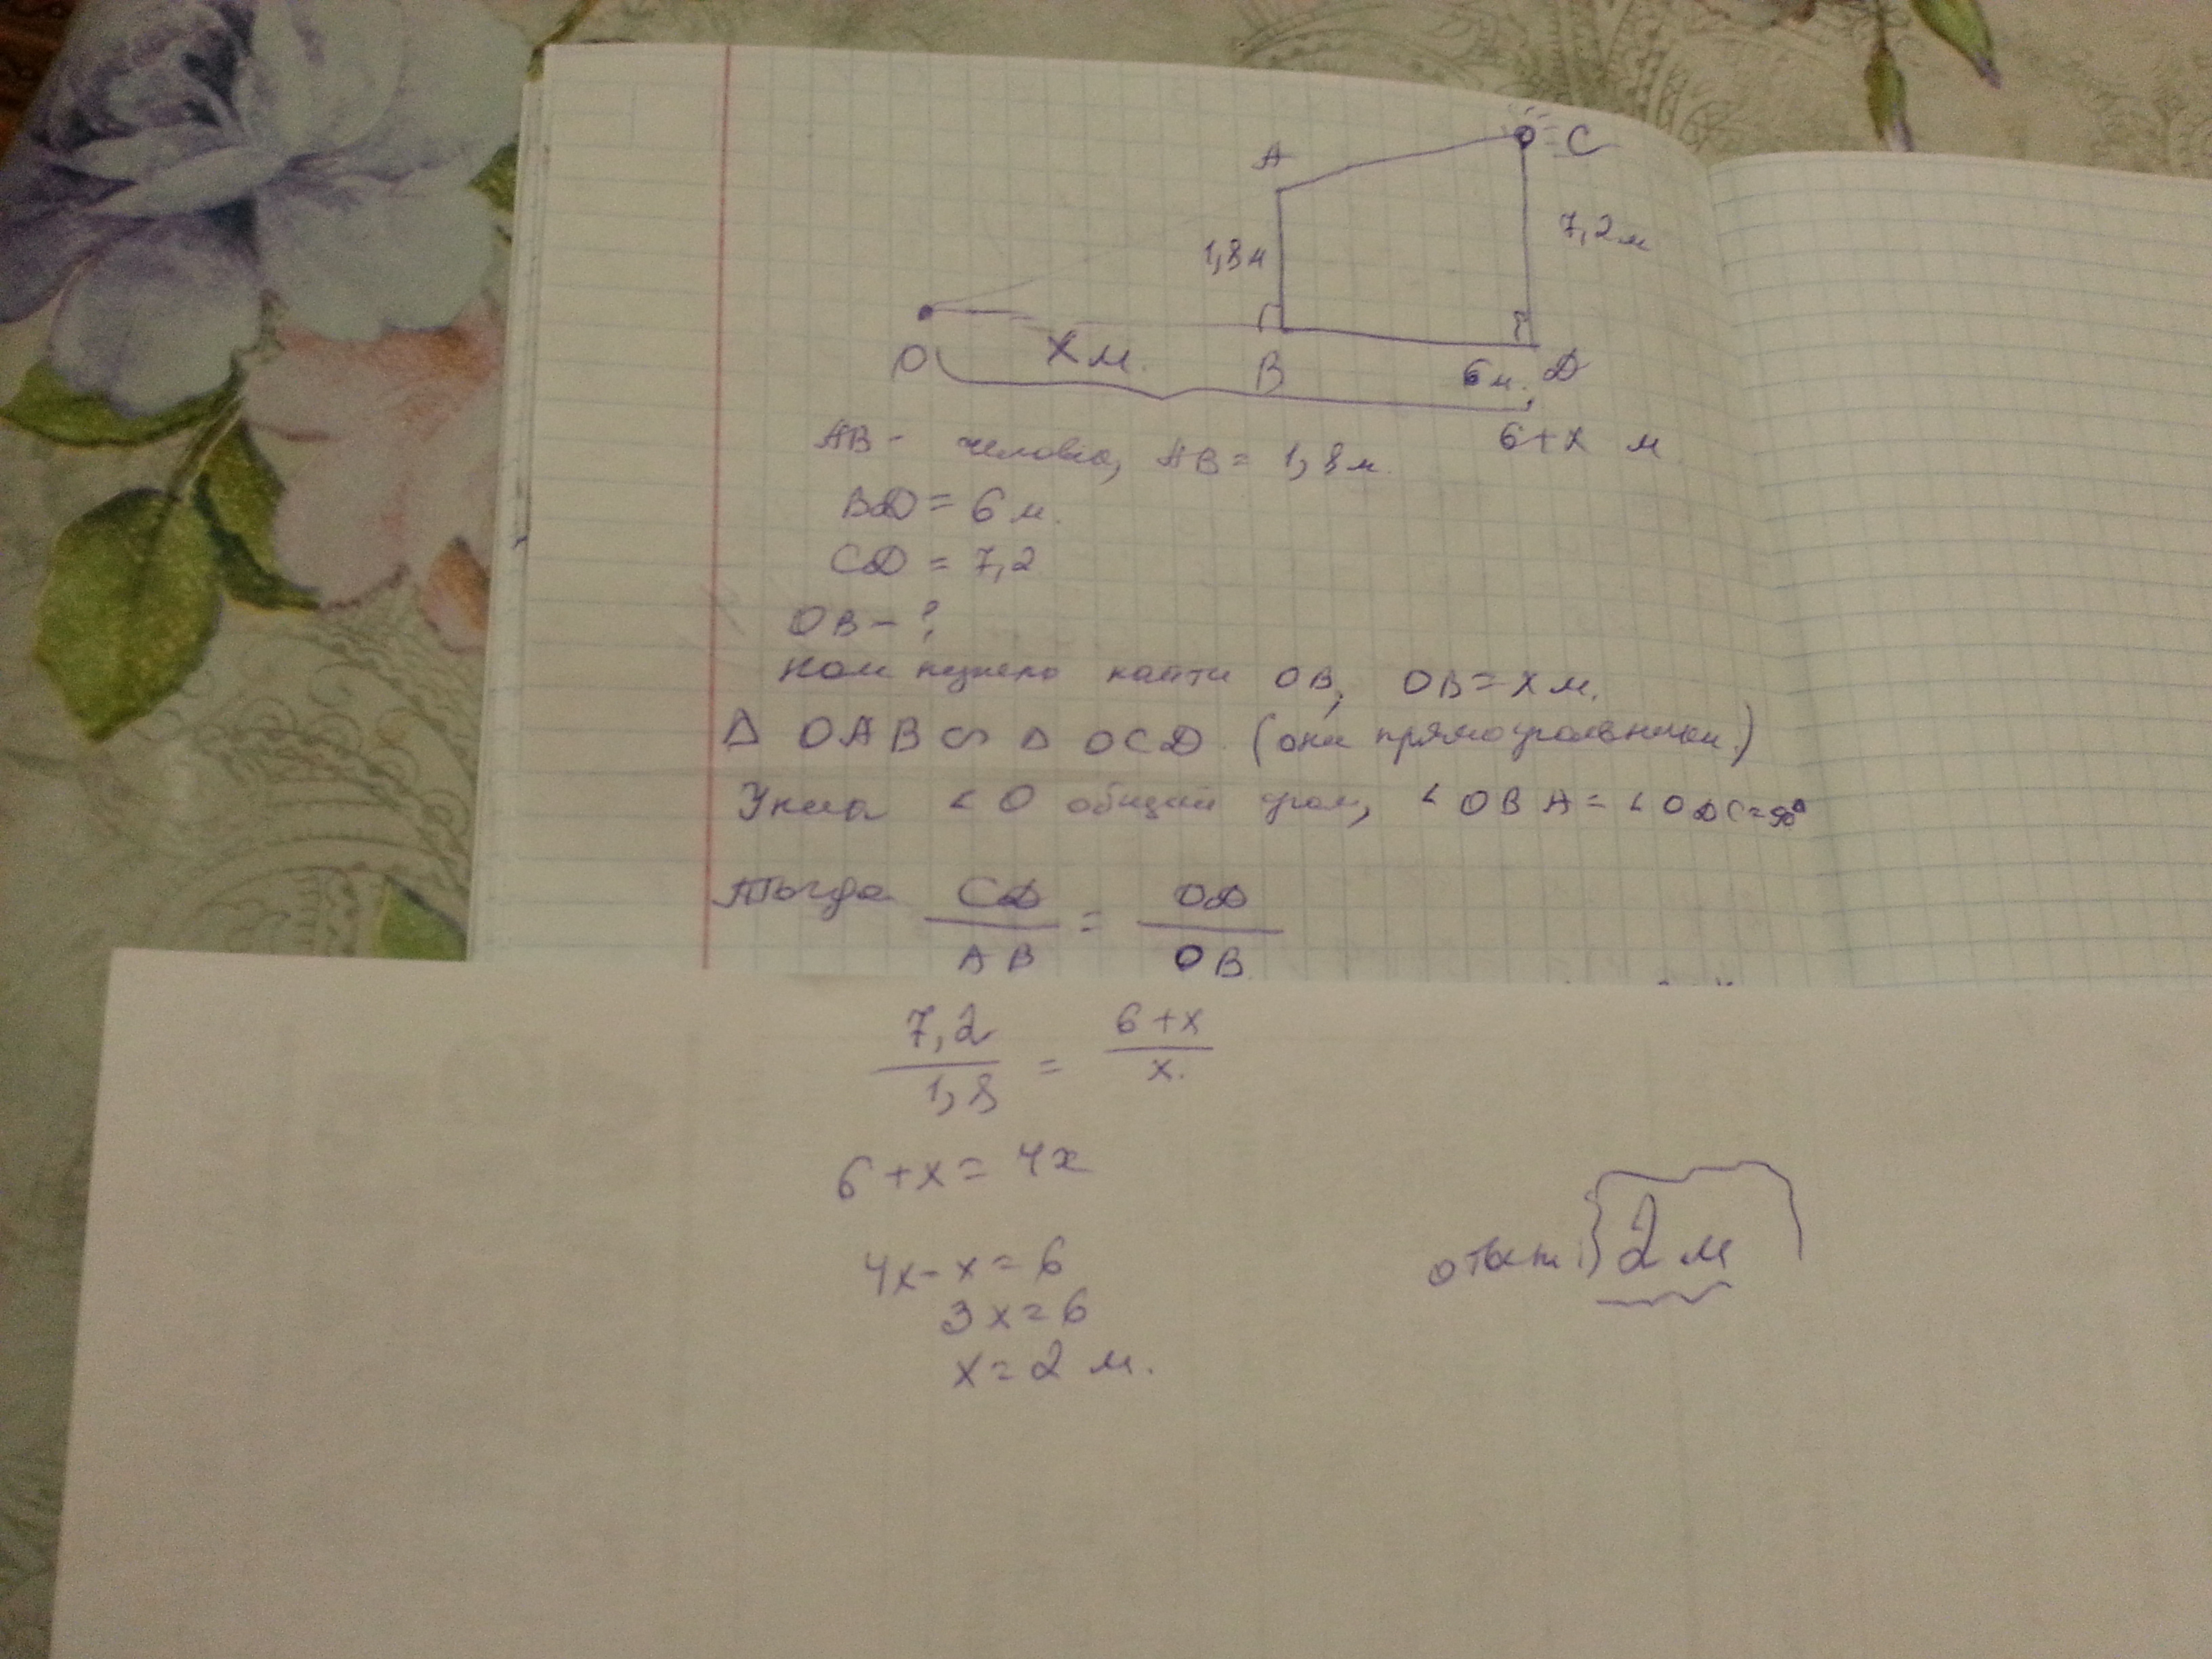 A
C
1,8 м
7,2 м
O
X м.
B
6 м.
D
6+x м
AB - человек, AB = 1,8 м.
BD = 6 м.
CD = 7,2
OB - ?
нам нужно найти OB, OB = x м.
Δ OAB ∽ Δ OCD (они прямоугольники.)
У них ∠ O общий угол, ∠ OBA = ∠ ODC = 90°
Тогда CD/AB = OD/OB
7,2/1,8 = 6+x/x.
6 + x = 4x
4x - x = 6
3x = 6
x = 2 м.
ответ: 2 м